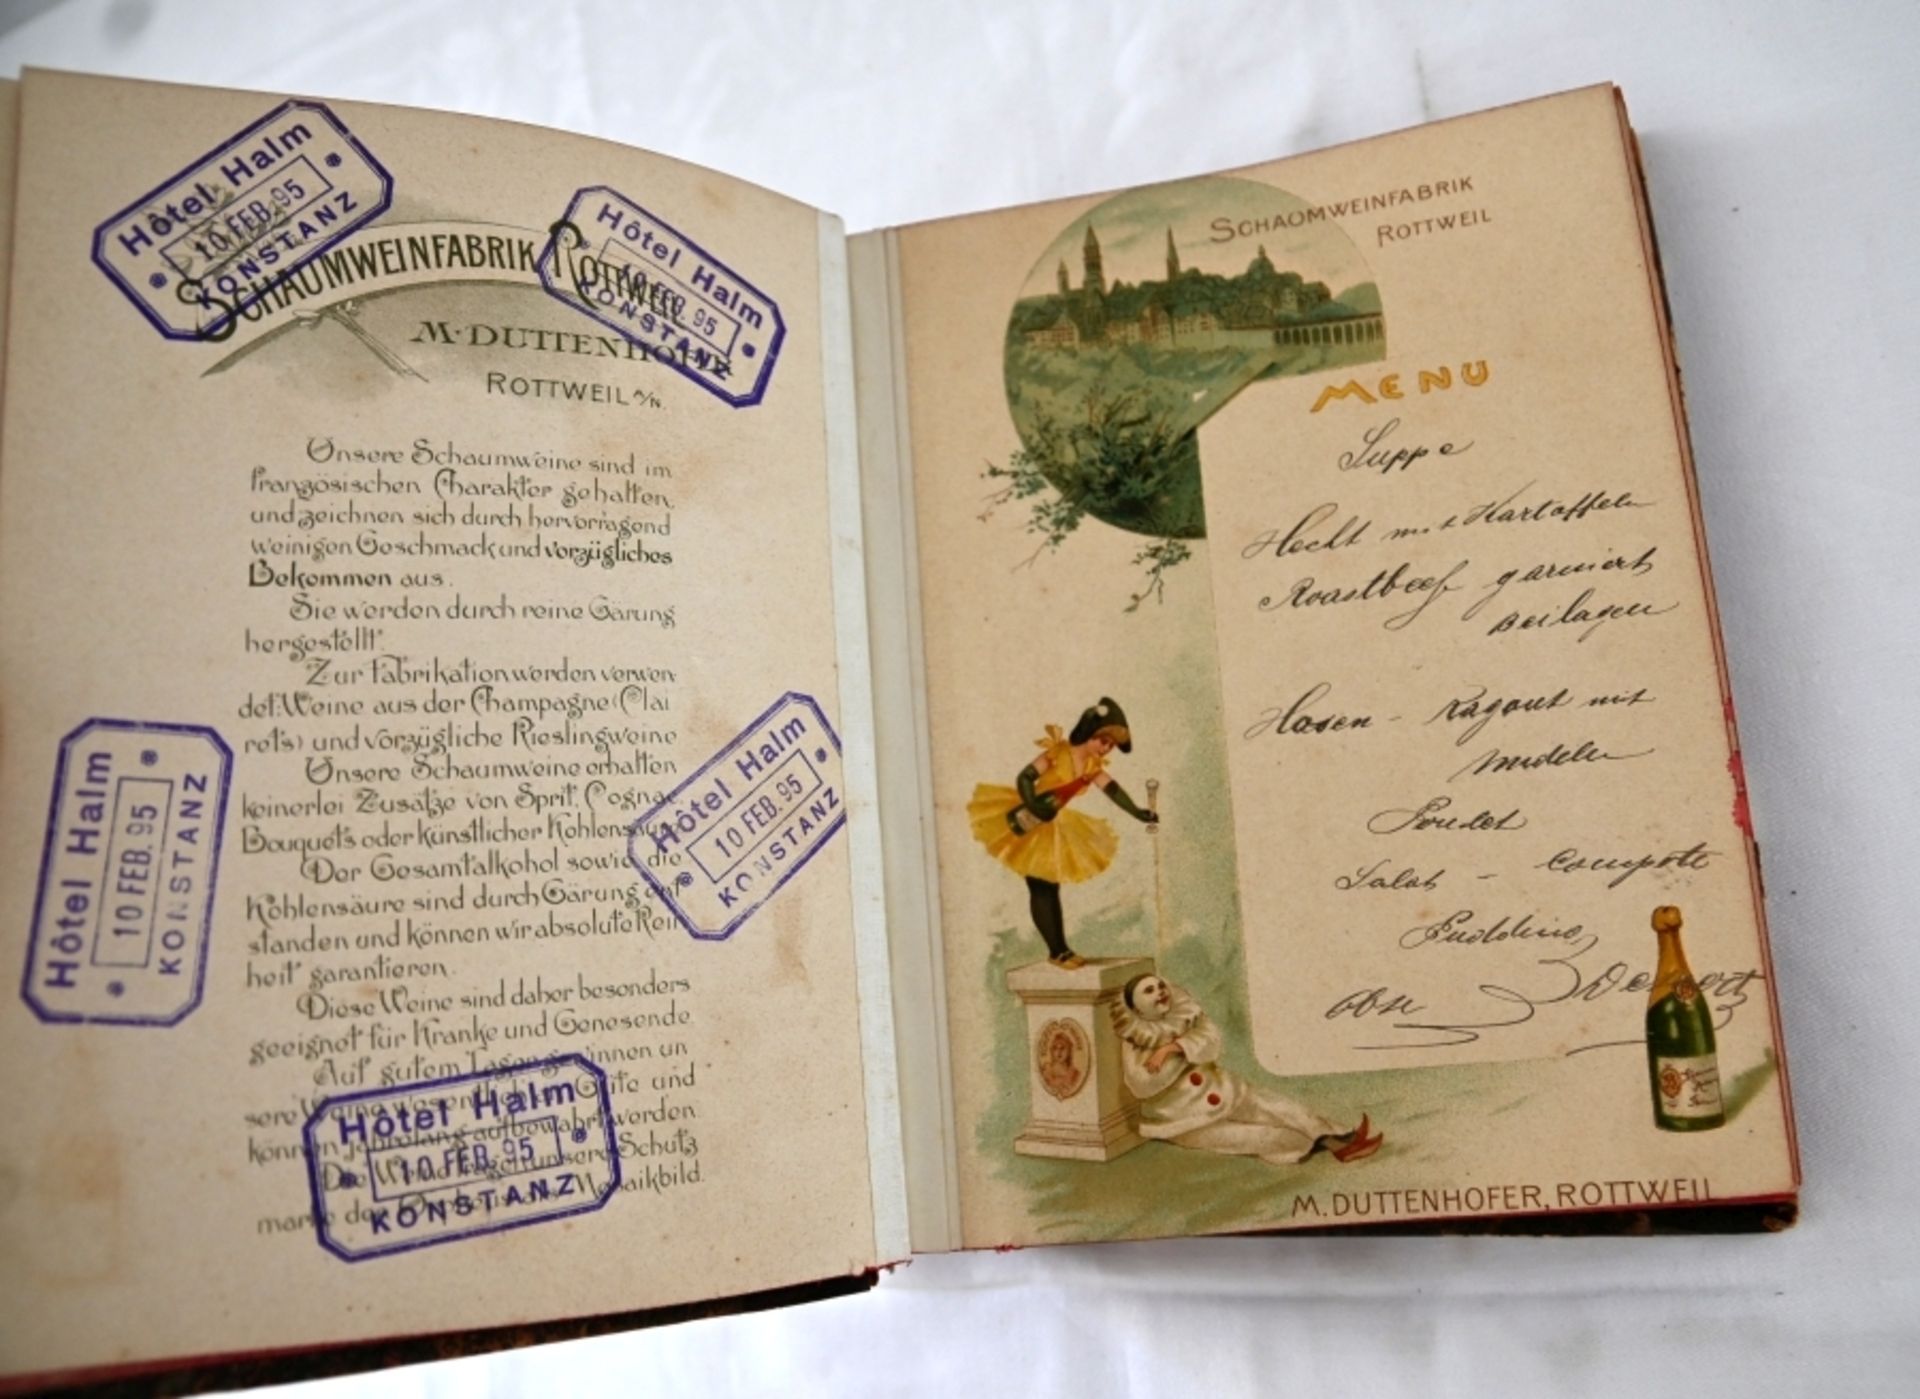 Hôtel Halm
10 FEB. 95
KONSTANZ
Hôtel Halm
10 FEB. 95
KONSTANZ
SCHAUMWEINFABRIK ROTTWEIL
M. DUTTENHOFER
ROTTWEIL A/N.
Unsere Schaumweine sind im
französischen Charakter gehalten,
und zeichnen sich durch hervorragend
weinigen Geschmack und vorzügliches
Bekommen aus.
Sie werden durch reine Gärung
hergestellt.
Zur Fabrikation werden verwen
det: Weine aus der Champagne (Clai
rets) und vorzügliche Rieslingweine
Unsere Schaumweine erhalten
keinerlei Zusätze von Sprit, Cognac
Bouquets oder künstlicher Kohlensäure
Der Gesamtalkohol sowie die
Kohlensäure sind durch Gärung ent
standen und können wir absolute Rein
heit garantieren.
Diese Weine sind daher besonders
geeignet für Kranke und Genesende.
Auf gutem Lager gewinnen un
sere Weine wesentlich an Güte und
können jahrelang aufbewahrt werden.
Die Weine tragen unsere Schutz
marke das Orpheus Mosaikbild.
Hôtel Halm
10 FEB. 95
KONSTANZ
Hôtel Halm
10 FEB. 95
KONSTANZ
Hôtel Halm
10 FEB. 95
KONSTANZ
SCHAUMWEINFABRIK
ROTTWEIL
MENU
Suppe
Hecht mit Kartoffeln
Roastbeef garniert
Beilagen
Hasen - Ragout mit
Nudeln
Poulet
Salat - Compote
Pudding
Obst Dessert
M. DUTTENHOFER, ROTTWEIL